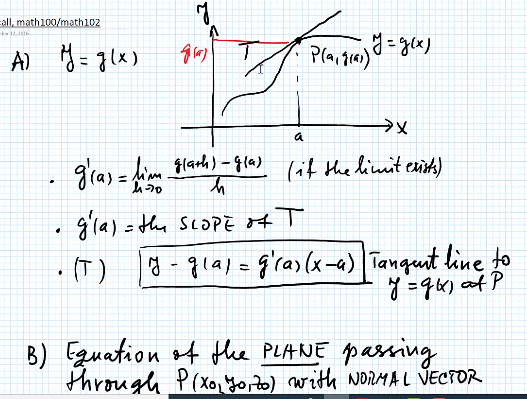 call, math100/math102
A) y = g(x)
y
g(a)
T
P(a, g(a))
y = g(x)
a
x
• g'(a) = lim h→0 g(a+h) − g(a) / h (if the limit exists)
• g'(a) = the SLOPE of T
• (T) y − g(a) = g'(a)(x−a) Tangent line to
y = g(x) at P
B) Equation of the PLANE passing
through P(x0, y0, z0) with NORMAL VECTOR